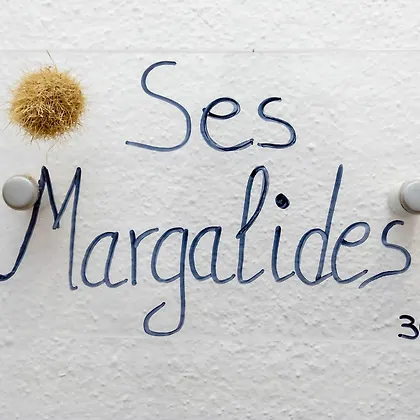 Ses
Margalides
3